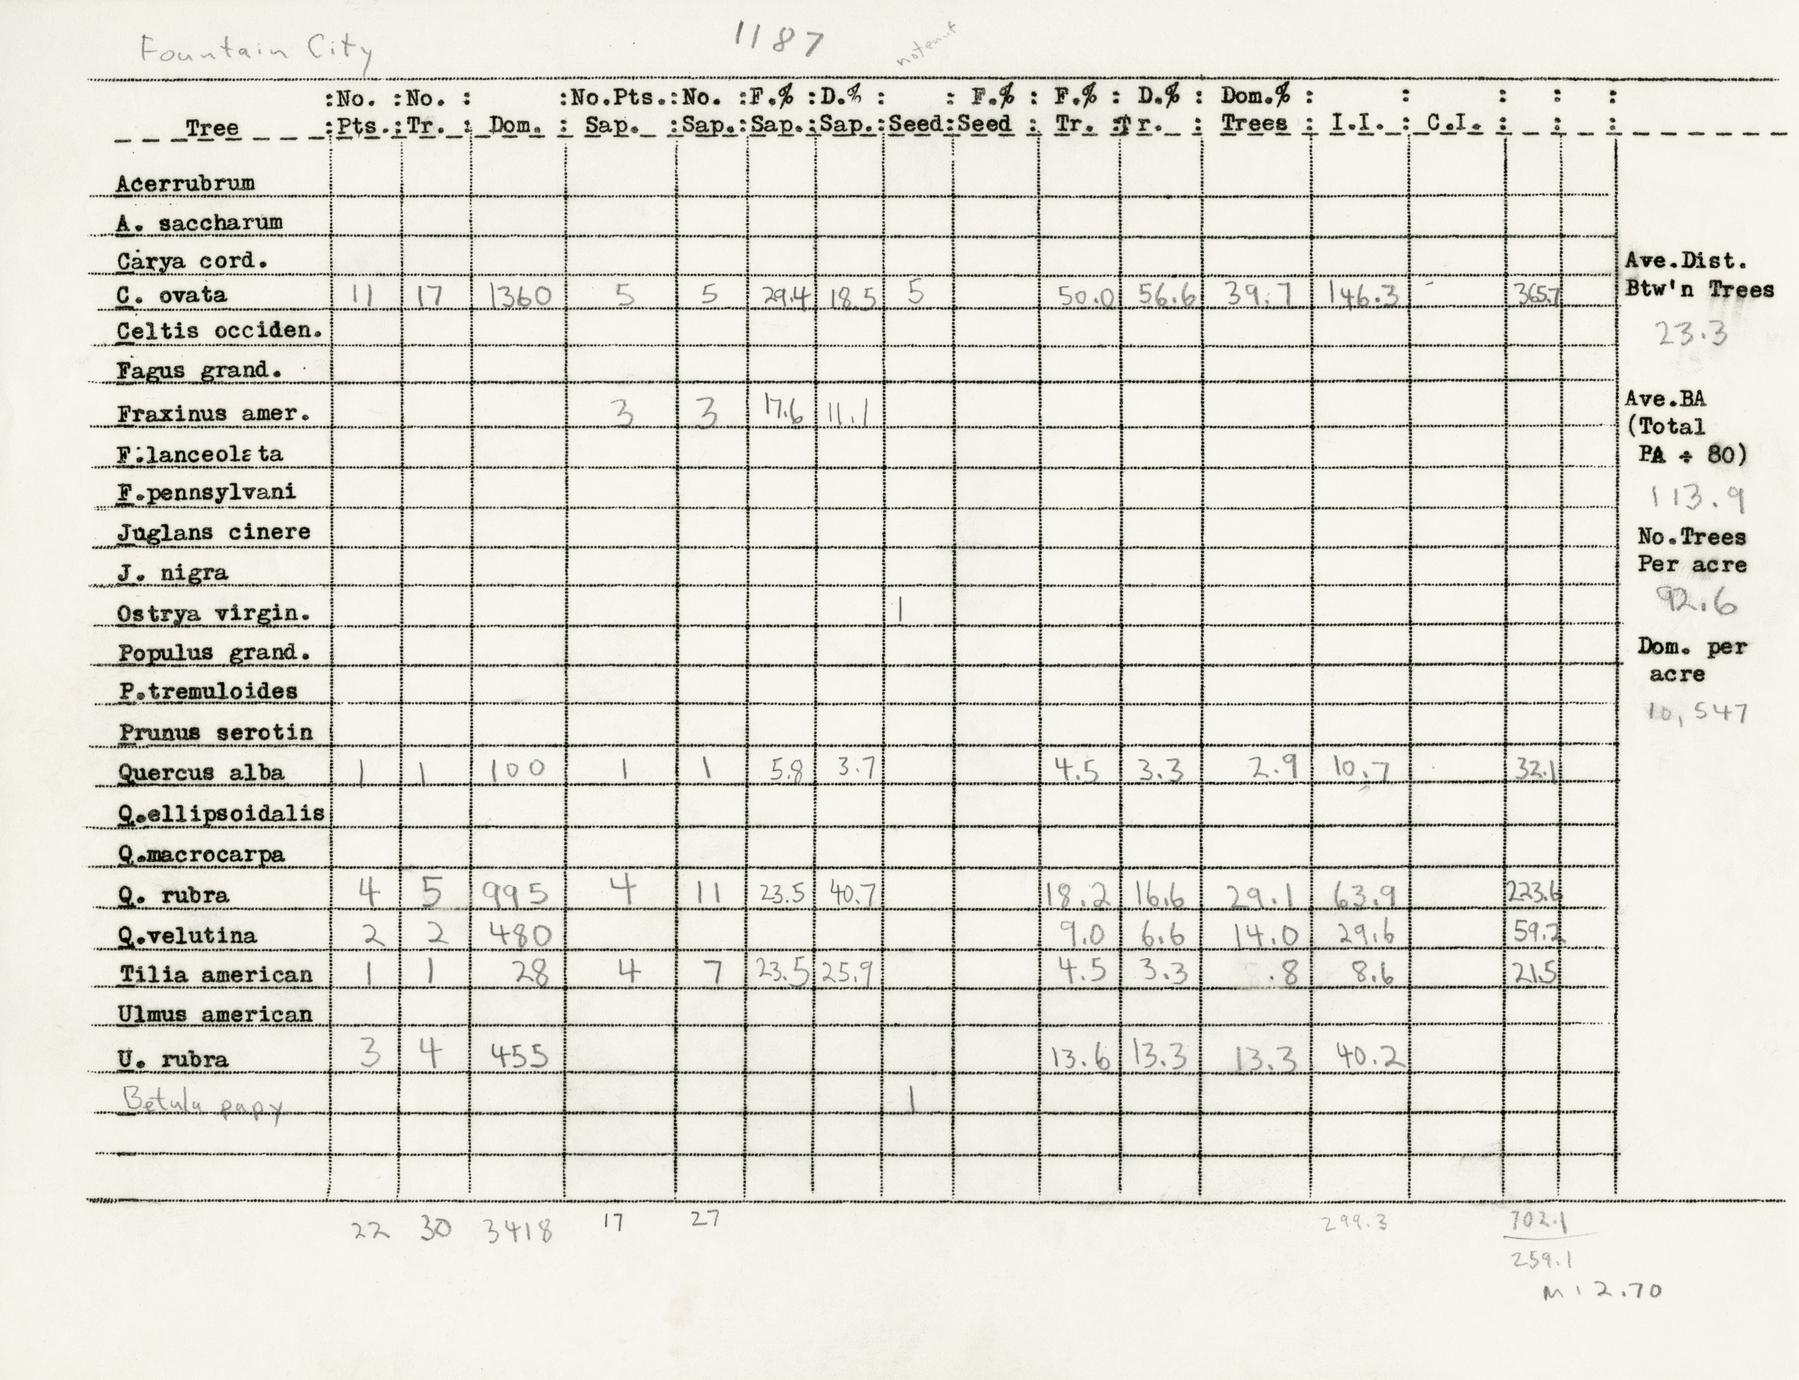 Fountain City 1187 notenuf
:No. :No. : :No.Pts.:No. :F.% :D.% : : F.% : F.% : D.% : Dom.% : : : : :
Tree :Pts.:Tr. : Dom. : Sap. :Sap.:Sap.:Sap.:Seed:Seed : Tr. :Tr. : Trees : I.I. : C.I. : : :
Acerrubrum
A. saccharum
Carya cord.
C. ovata 11 17 1360 5 5 29.4 18.5 5 50.0 56.6 39.7 146.3 - 365.7
Celtis occiden.
Fagus grand.
Fraxinus amer. 3 3 17.6 11.1
F.lanceolata
F.pennsylvani
Juglans cinere
J. nigra
Ostrya virgin. 1
Populus grand.
P.tremuloides
Prunus serotin
Quercus alba 1 1 100 1 1 5.8 3.7 4.5 3.3 2.9 10.7 32.1
Q.ellipsoidalis
Q.macrocarpa
Q. rubra 4 5 995 4 11 23.5 40.7 18.2 16.6 29.1 63.9 223.6
Q.velutina 2 2 480 9.0 6.6 14.0 29.6 59.2
Tilia american 1 1 28 4 7 23.5 25.9 4.5 3.3 .8 8.6 21.5
Ulmus american
U. rubra 3 4 455 13.6 13.3 13.3 40.2
Betula papy 1
22 30 3418 17 27 299.3 702.1
259.1
M 1 2.70
Ave.Dist.
Btw'n Trees
23.3
Ave.BA
(Total
PA ÷ 80)
113.9
No.Trees
Per acre
92.6
Dom. per
acre
10,547